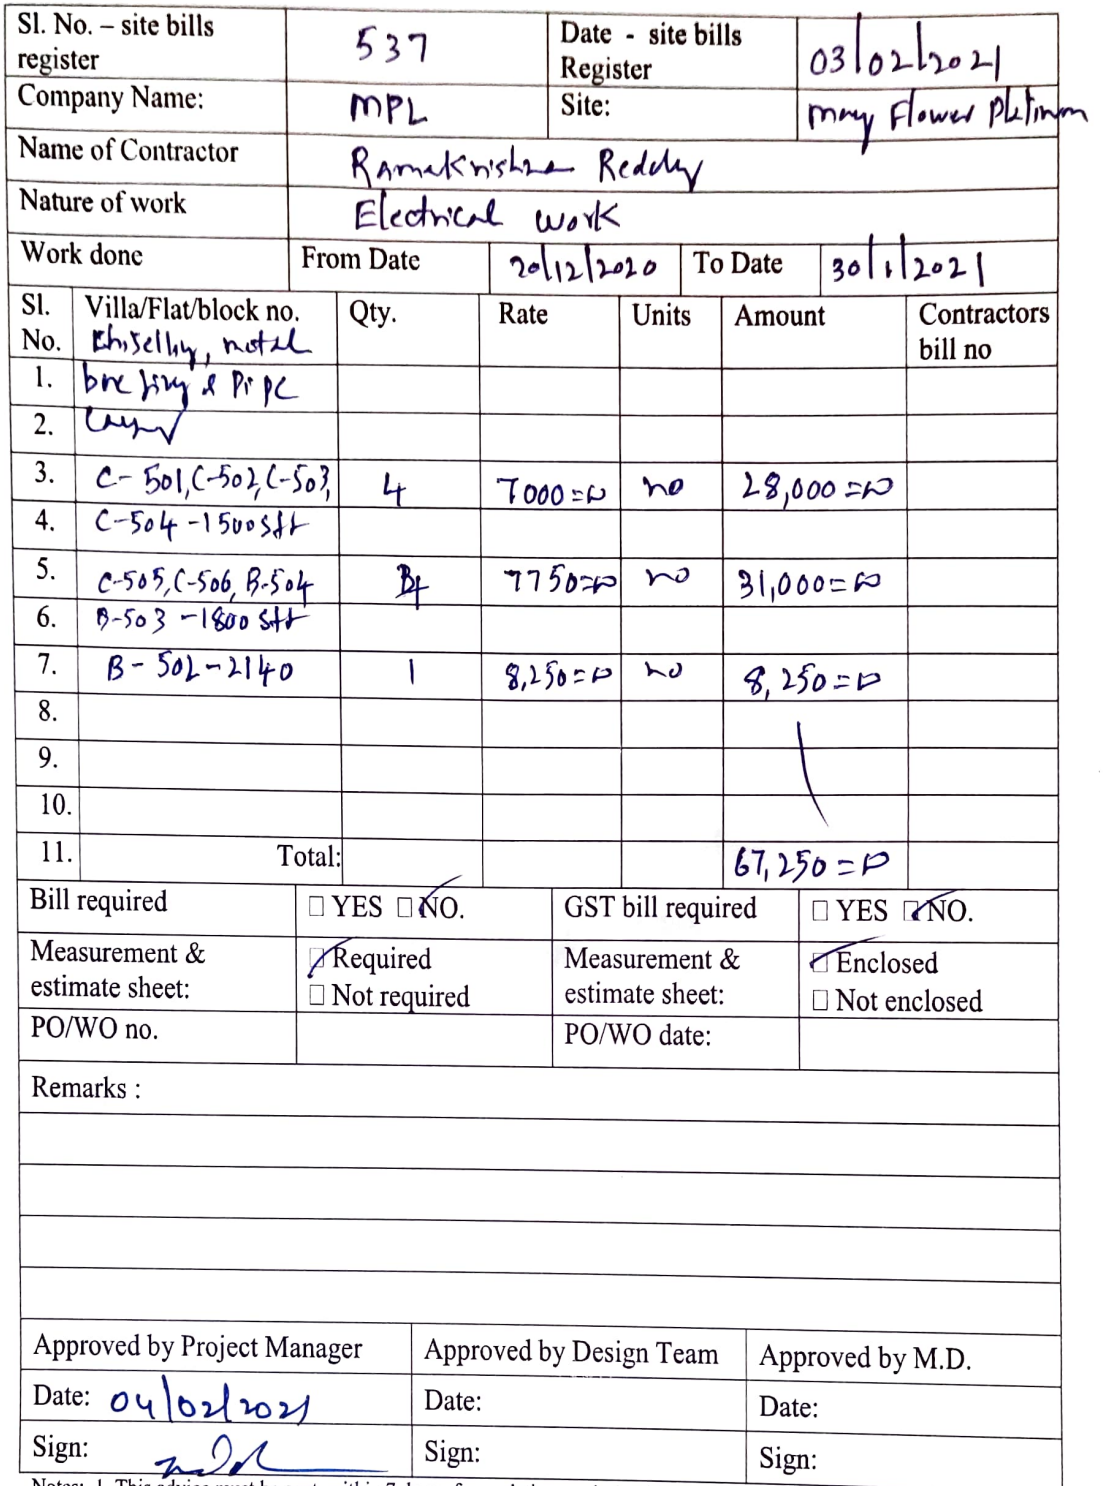 Sl. No. – site bills register 537 Date - site bills Register 03/02/2021
Company Name: MPL Site: may Flower Platinum
Name of Contractor Ramakrishna Reddy
Nature of work Electrical work
Work done From Date 20/12/2020 To Date 30/1/2021
Sl. No. Villa/Flat/block no. Qty. Rate Units Amount Contractors bill no
1. & Pipe
2.
3. C-501, C-502, C-503, 4 7000=00 no 28,000=00
4. C-504 - 1500 sft
5. C-505, C-506, B-504 4 7750=00 no 31,000=00
6. B-503 - 1800 sft
7. B-502-2140 1 8,250=00 no 8,250=00
8.
9.
10.
11. Total: 67,250=00
Bill required □ YES □ NO. GST bill required □ YES □ NO.
Measurement & estimate sheet: □ Required Measurement & estimate sheet: □ Enclosed
□ Not required □ Not enclosed
PO/WO no. PO/WO date:
Remarks :
Approved by Project Manager Approved by Design Team Approved by M.D.
Date: 04/02/2021 Date: Date:
Sign: Sign: Sign: